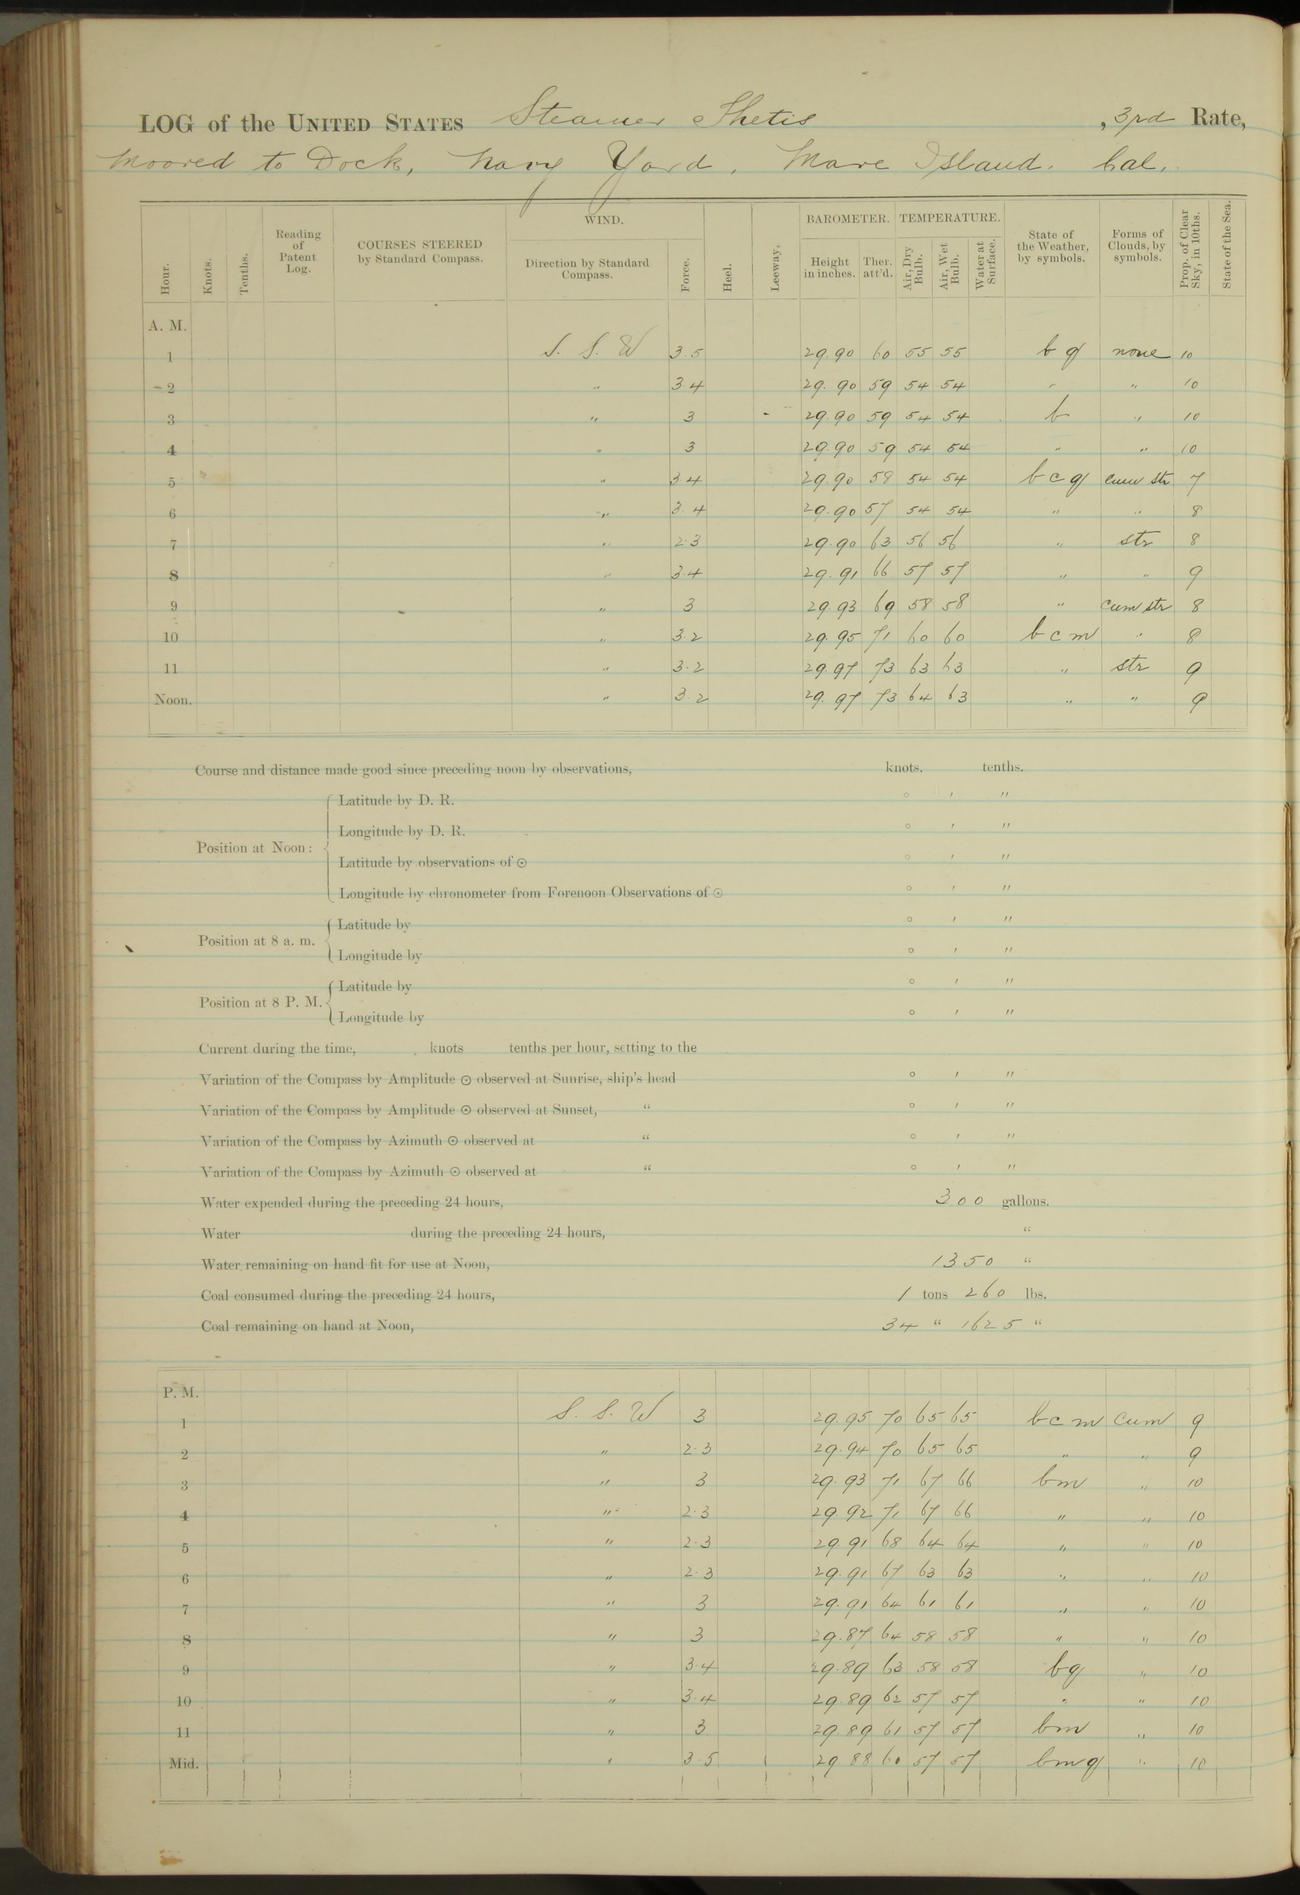 LOG of the UNITED STATES Steamer Thetis , 3rd Rate,
Moored to Dock, Navy Yard, Mare Island. Cal.
Hour. Knots. Tenths. Reading of Patent Log. COURSES STEERED by Standard Compass. WIND. Direction by Standard Compass. Force. Heel. Leeway. BAROMETER. Height in inches. Ther. att'd. TEMPERATURE. Air, Dry Bulb. Air, Wet Bulb. Water at Surface. State of the Weather, by symbols. Forms of Clouds, by symbols. Prop. of Clear Sky, in 10ths. State of the Sea.
A. M.
1 S. S. W 3.5 29.90 60 55 55 b q none 10
2 " 3.4 29.90 59 54 54 " " 10
3 " 3 29.90 59 54 54 b " 10
4 " 3 29.90 59 54 54 " " 10
5 " 3.4 29.90 58 54 54 b c q cum str 7
6 " 3.4 29.90 57 54 54 " " 8
7 " 2.3 29.90 63 56 56 " str 8
8 " 3.4 29.91 66 57 57 " " 9
9 " 3 29.93 69 58 58 " cum str 8
10 " 3.2 29.95 71 60 60 b c m " 8
11 " 3.2 29.97 73 63 63 " str 9
Noon. " 3.2 29.97 73 64 63 " " 9
Course and distance made good since preceding noon by observations, knots. tenths.
Latitude by D. R. ° ' "
Longitude by D. R. ° ' "
Position at Noon:
Latitude by observations of ⊙ ° ' "
Longitude by chronometer from Forenoon Observations of ⊙ ° ' "
Latitude by ° ' "
Position at 8 a. m.
Longitude by ° ' "
Latitude by ° ' "
Position at 8 P. M.
Longitude by ° ' "
Current during the time, knots tenths per hour, setting to the
Variation of the Compass by Amplitude ⊙ observed at Sunrise, ship's head ° ' "
Variation of the Compass by Amplitude ⊙ observed at Sunset, " ° ' "
Variation of the Compass by Azimuth ⊙ observed at " ° ' "
Variation of the Compass by Azimuth ⊙ observed at " ° ' "
Water expended during the preceding 24 hours, 300 gallons.
Water during the preceding 24 hours, "
Water remaining on hand fit for use at Noon, 1350 "
Coal consumed during the preceding 24 hours, 1 tons 260 lbs.
Coal remaining on hand at Noon, 34 " 1625 "
P. M.
1 S. S. W 3 29.95 70 65 65 b c m cum 9
2 " 2.3 29.94 70 65 65 " " 9
3 " 3 29.93 71 67 66 bm " 10
4 " 2.3 29.92 71 67 66 " " 10
5 " 2.3 29.91 68 64 64 " " 10
6 " 2.3 29.91 67 63 63 " " 10
7 " 3 29.91 64 61 61 " " 10
8 " 3 29.87 64 58 58 " " 10
9 " 3.4 29.89 63 58 58 bq " 10
10 " 3.4 29.89 62 57 57 " " 10
11 " 3 29.89 61 57 57 bm " 10
Mid. " 3.5 29 88 60 57 57 bmq " 10